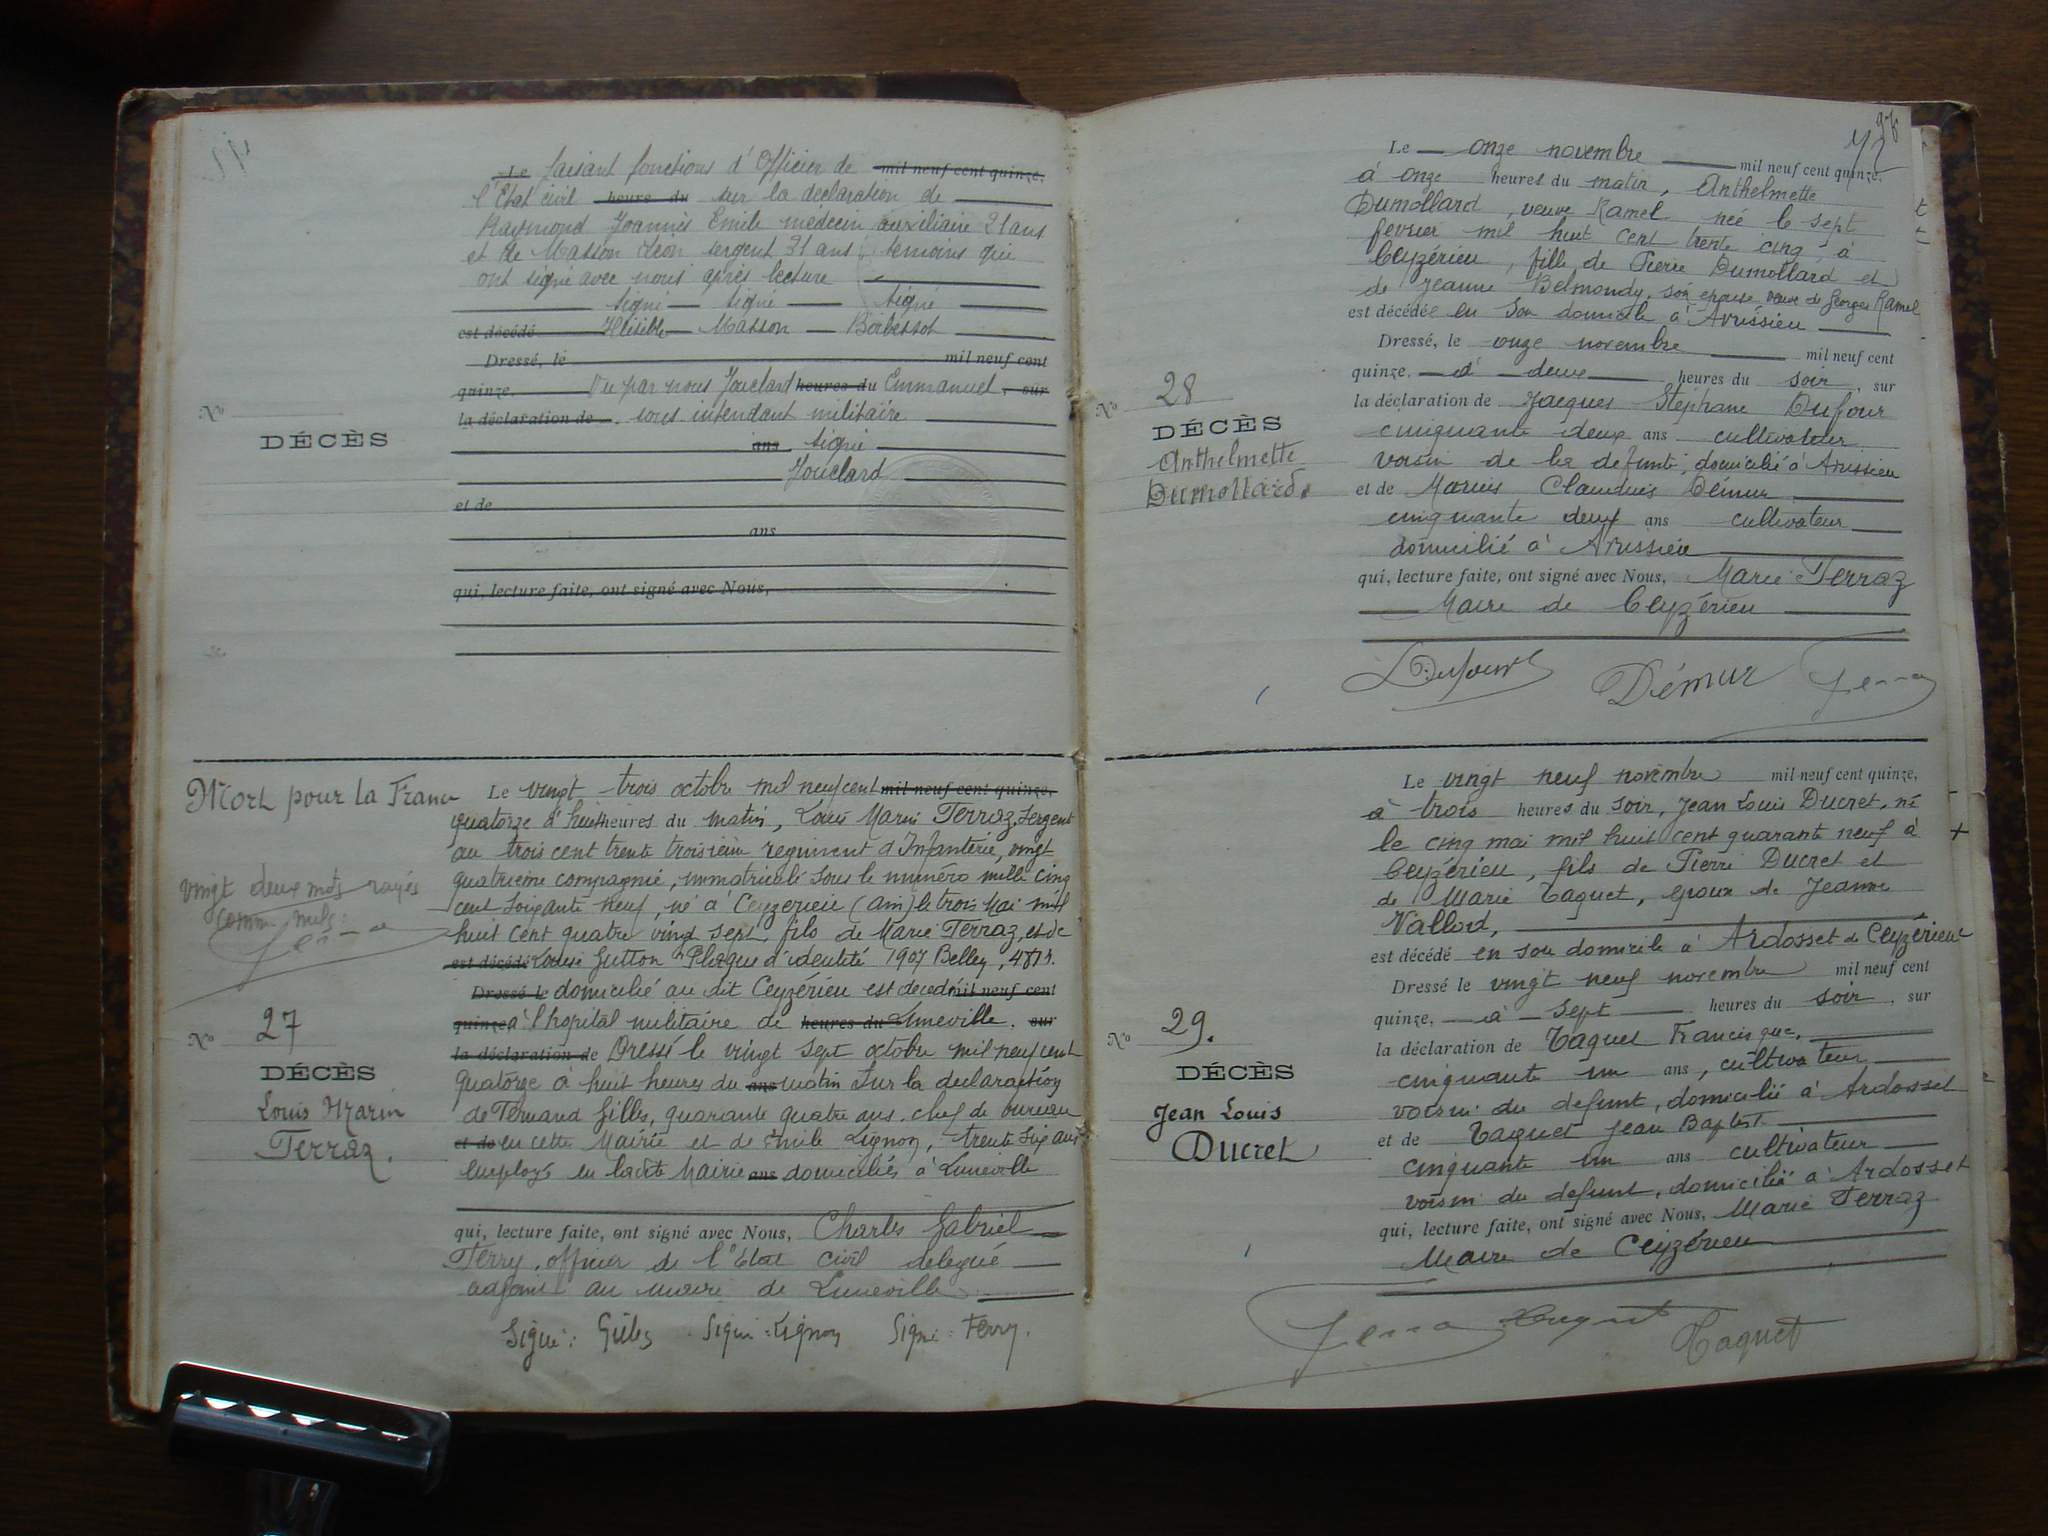 Le faisant fonctions d'Officier de mil neuf cent quinze,
l'Etat civil heure du sur la declaration de
Raymond Joannès Emile medecin auxiliaire 21 ans
et de Masson Leon sergent 31 ans, temoins qui
ont signé avec nous après lecture
signé signé signé
est décédé Illisible Masson
Dressé, le mil neuf cent
quinze Vu par nous Jouclard heures du Emmanuel, sur
la déclaration de sous intendant militaire
ans signé
Jouclard
et de
ans
qui, lecture faite, ont signé avec Nous,
No
DÉCÈS
Mort pour la France
vingt deux mots rayés
No 27
DÉCÈS
Louis Marin
Terraz.
Le vingt trois octobre mil neuf cent mil neuf cent quinze,
quatorze à huit heures du matin, Louis Marin Terraz, Sergent
au trois cent trente troisième regiment d'Infanterie, vingt
quatrième compagnie, immatriculé sous le numéro mille cinq
cent soixante neuf, né à Ceyzerieu (ain) le trois Mai mil
huit cent quatre vingt sept, fils de Marie Terraz, et de
est décédé Louise Gutton Plaque d'identité 1907 Belley,
Dressé le domicilié au dit Ceyzérieu est decedé mil neuf cent
quinze à l'hopital militaire de heures du Luneville. sur
la déclaration de Dressé le vingt sept octobre mil neuf cent
quatorze à huit heures du ans matin Sur la declaration
de Fernand Gilles, quarante quatre ans, chef de bureau
et de en cette Mairie et de Emile Lignon, trente six ans
employé en ladite Mairie ans domiciliés à Luneville
qui, lecture faite, ont signé avec Nous, Charles Gabriel
Ferry, officier de l'Etat civil delegué
adjoint au maire de Luneville
Signé: Gilles Signé: Lignon Signé: Ferry.
Le onze novembre mil neuf cent quinze,
à onze heures du matin, Anthelmette
Dumollard, veuve Ramel née le sept
fevrier mil huit cent trente cinq à
Ceyzérieu, fille de Pierre Dumollard et
de Jeanne Belmondy, son epouse, veuve de Georges Ramel
est décédée en son domicile à Avrissieu
Dressé, le onze novembre mil neuf cent
quinze, à deux heures du soir, sur
la déclaration de Jacques Stéphane Dufour
cinquante deux ans cultivateur
voisin de la defunte, domicilié à Avrissieu
et de Marius Claudius Démur
cinquante deux ans cultivateur
domicilié à Avrissieu
qui, lecture faite, ont signé avec Nous, Marie Terraz
Maire de Ceyzérieu
No 28
DÉCÈS
Anthelmette
Dumollard.
Dufour Démur Terraz
Le vingt neuf novembre mil neuf cent quinze,
à trois heures du soir, Jean Louis Ducret, né
le cinq mai mil huit cent quarante neuf à
Ceyzérieu, fils de Pierre Ducret et
de Marie Taquet, epoux de Jeanne
Vallod,
est décédé en son domicile à Ardosset de Ceyzérieu
Dressé le vingt neuf novembre mil neuf cent
quinze, à sept heures du soir, sur
la déclaration de Taquet Francisque,
cinquante un ans, cultivateur
voisin du defunt, domicilié à Ardosset
et de Taquet Jean Baptist
cinquante un ans cultivateur
voisin du defunt, domicilié à Ardosset
qui, lecture faite, ont signé avec Nous, Marie Terraz
Maire de Ceyzérieu
No 29.
DÉCÈS
Jean Louis
Ducret
Terraz Taquet Taquet